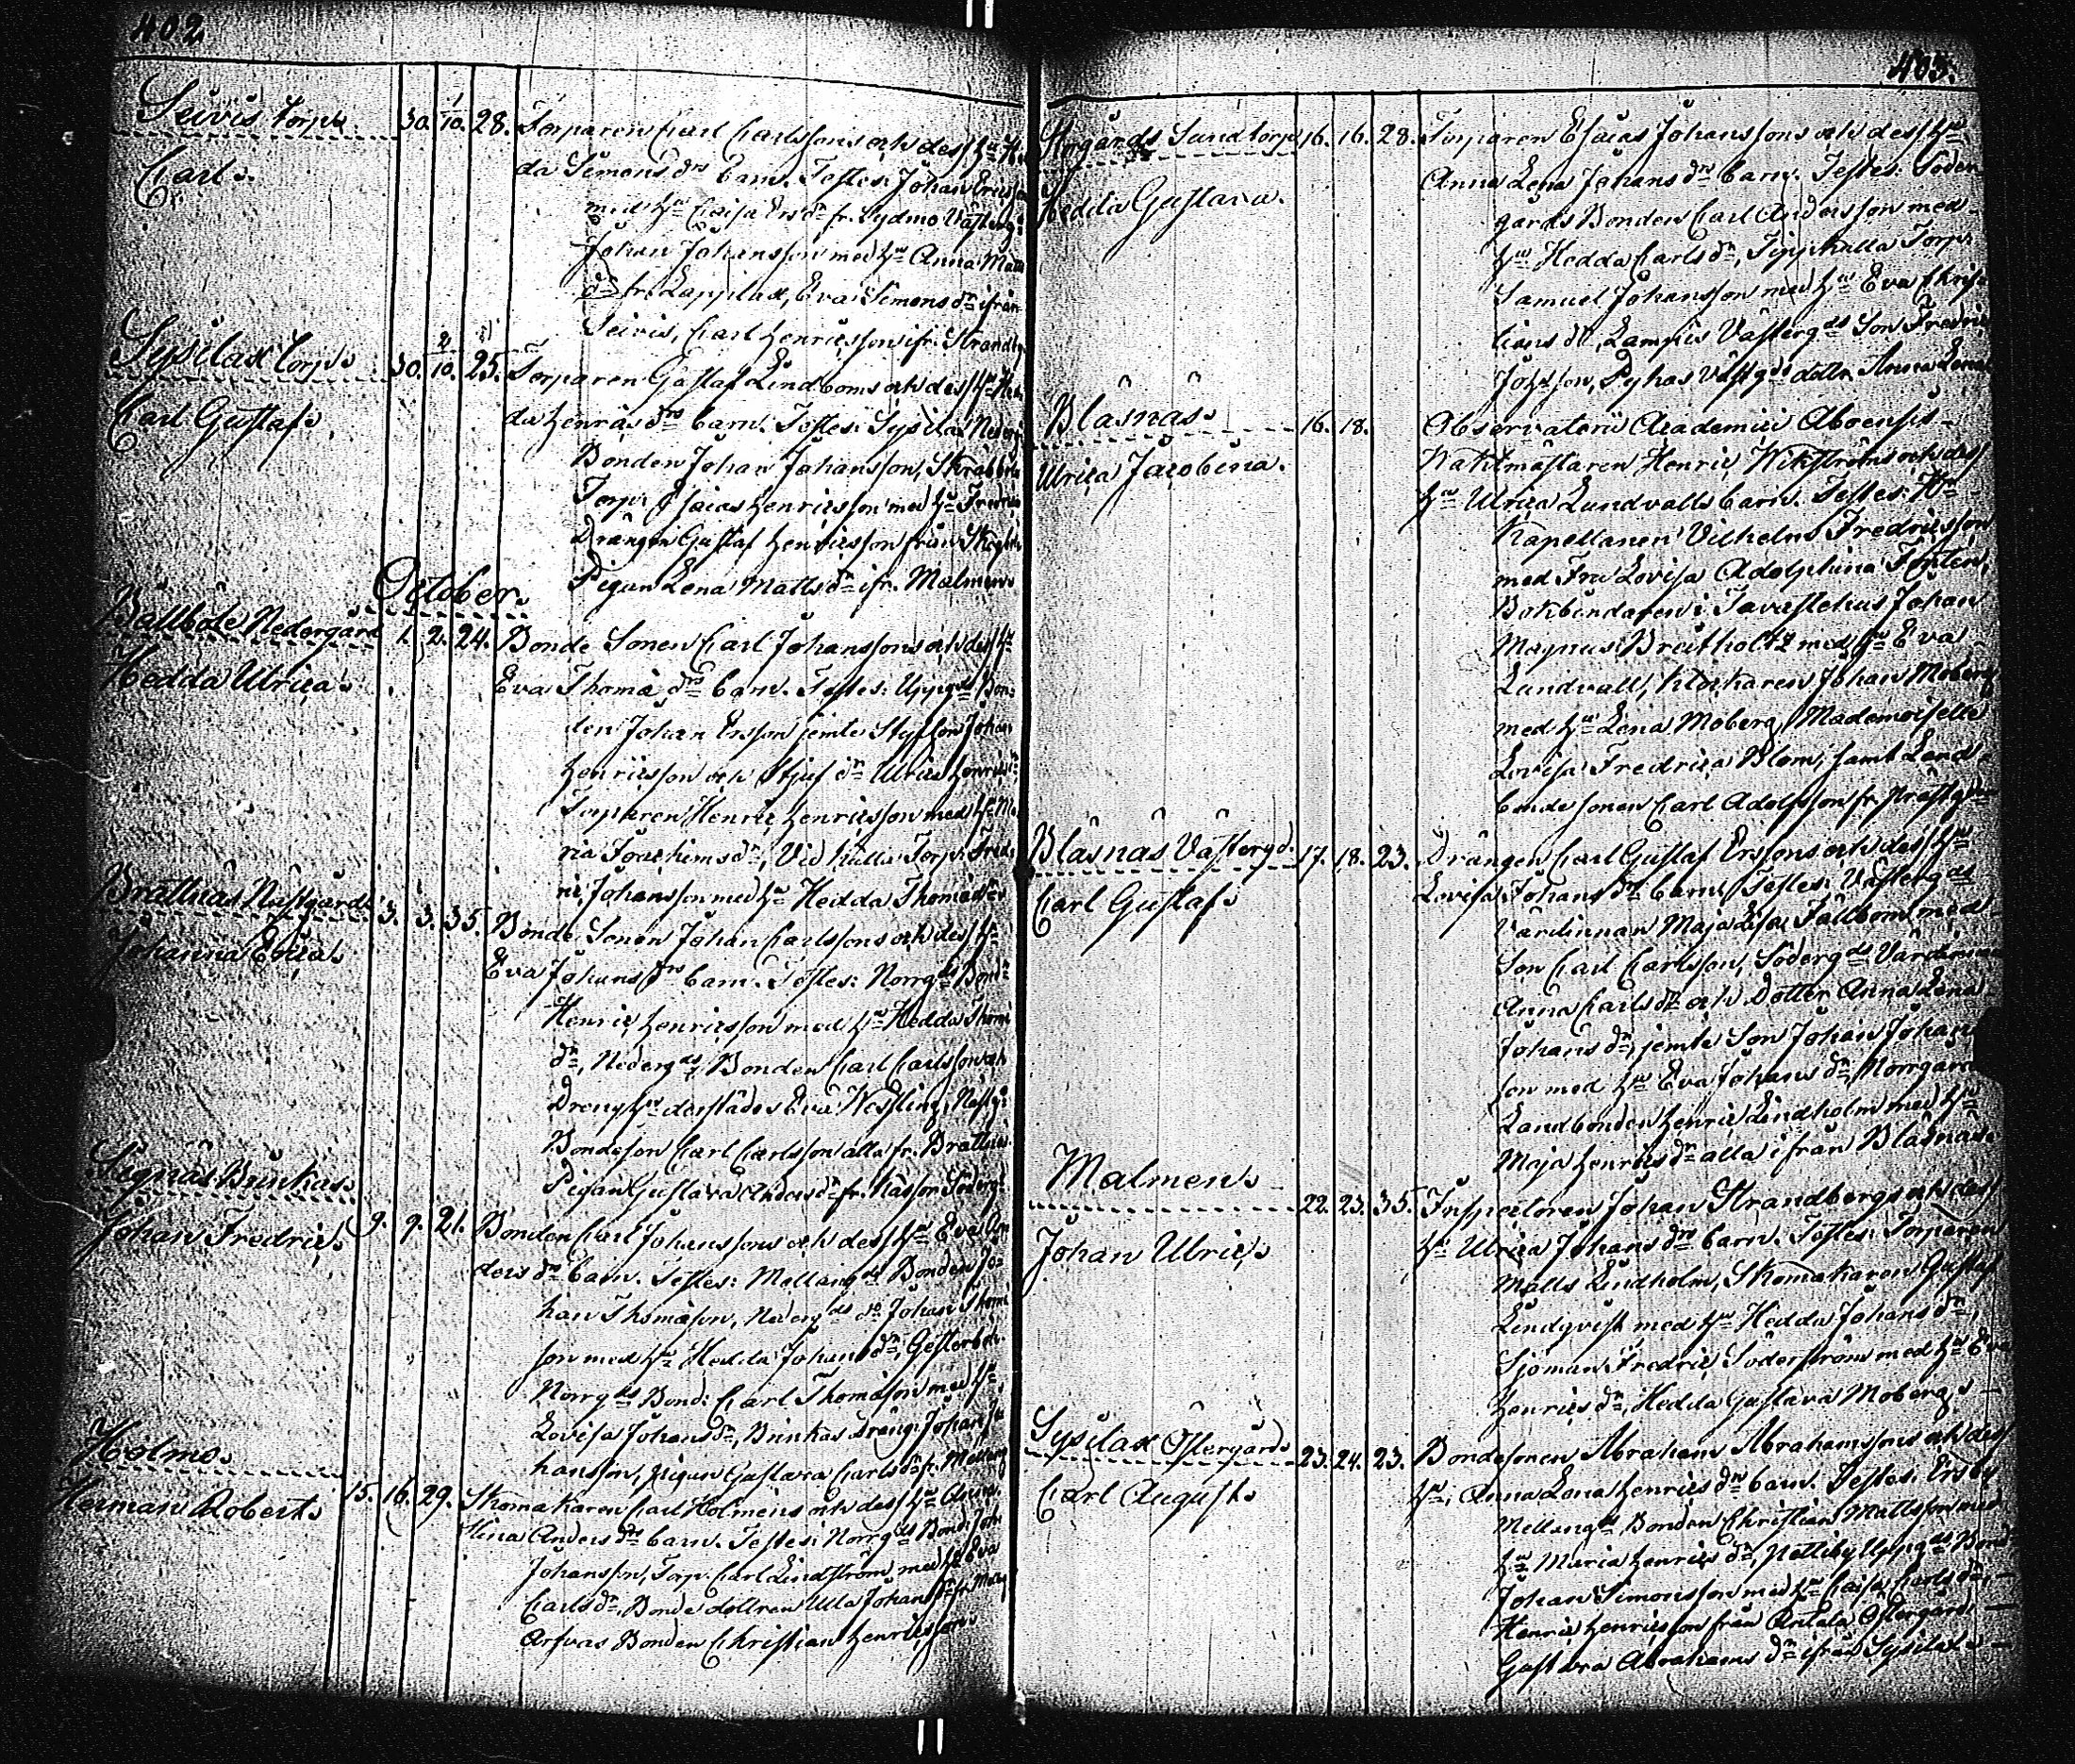 402
Seivis torp. 30. 1/10. 28. Torparen Carl Carlssons och dess Hu
Carl.
da Simons drs barn. Testes: Johan Ericsson
med Hu Caisa Ers dr fr. Vydmo Västerg:
Johan Johansson med Hu Anna Matts
dr fr. Lappilax, Eva Simons dr ifrån
Seivis, Carl Henricsson ifr.
Sysilax torp. 30. 2/10. 25. Torparen Gustaf Lindboms och dess Hu
Carl Gustaf.
da Henrics drs barn. Testes: Sysilax Nederg
Bonden Johan Johansson,
Torp. Esaias Henricsson med Hu Fredrica
Drängen Gustaf Henricsson från
Pigan Lena Matts dr ifr. Malmen.
October.
Ballbole Nedergård 1. 2. 24. Bonde Sonen Carl Johanssons och dess H
Hedda Ulrica.
Eva Thomæ drs barn. Testes: Uppgds Bon-
den Johan Ersson jemte Styfson Johan
Henricsson och Stjuf dr Ulrica Henrics dr
Torparen Henric Henricsson med Hu Ma
ria Joachims dr, Torp: Fred
ric Johansson med Hu Hedda Thomæ dr
Brattnäs Nästgårds 3. 3. 35. Bonde Sonen Johan Carlssons och dess H
Johanna Erica.
Eva Johans drs barn. Testes: Norrgds Bond
Henric Henricsson med Hu Hedda Thomæ
dr, Nedergds Bonden Carl Carlsson och
Dreng Hu derstädes Eva Wessling, Nästg:
Bondeson Carl Carlsson alla fr. Brattnäs
Pigan Gustava Anders dr fr.
Signäs Brinkas.
Johan Fredric. 9. 9. 21. Bonden Carl Johanssons och dess Hu Eva An
ders drs barn. Testes: Mellangds Bonden Jo-
han Thomæson, Nedergds do Johan Thomæ
son med Hu Hedda Johans dr, Gesterby
Norrgds Bond: Carl Thomæson med H
Lovisa Johans dr, Brinkas Dräng: Johan Jo
hansson, pigan Gustava Carls dr fr. Mellang
Holmo.
Herman Robert. 15. 16. 29. Skomakaren Carl Holmens och dess Hu Anna
Stina Anders drs barn. Testes: Norrgds Bond: Joh
Johansson, Torp. Carl Lindström med Hu Eva
Carls dr, Bonde dottren Ulla Johans dr fr.
Bonden Christian Henricsson.
403.
Storgårds Sund torp 16. 16. 28. Torparen Esaias Johanssons och dess Hu
Hedda Gustava.
Anna Lena Johans drs barn. Testes: Söder
gårds Bonden Carl Andersson med
Hu Hedda Carls dr, Torp:
Samuel Johansson med Hu Eva Chris
tians dr, Västergds Son Fredric
Johsson, Pykas Västgds dottr Anna Lena
Blåsnäs. 16. 18. Observatorii Academici Aboensis
Ulrica Jacobina.
Wakhtmästaren Henric Wikströms och dess
Hu Ulrica Lundvalls barn. Testes: Hr
Kapellanen Vilhelm Fredricsson
med Fru Lovisa Adolphina
Bokbindaren i Tavastehus Johan
Magnus Breitholtz med Hu Eva
Lundvall, Klockaren Johan Moberg
med Hu Lena Moberg, Mademoiselle
Lovisa Fredrica Blom, samt Land-
bonde sonen Carl Adolfsson fr.
Blåsnäs Västergd. 17. 18. 23. Drängen Carl Gustaf Erssons och dess Hu
Carl Gustaf.
Lovisa Johans drs barn. Testes: Västergds
Värdinnan Maja Lisa Fällbom med
Son Carl Carlsson, Södergds Värdinnan
Anna Carls dr och Dotter Anna Lena
Johans dr, jemte Son Johan Johans
son med Hu Eva Johans dr, Norrgård
Landbonden Henric Lindholm med Hu
Maja Henrics dr alla ifrån Blåsnäs
Malmen. 22. 23. 35. Inspectoren Johan Strandbergs och dess
Johan Ulric.
Hu Ulrica Johans drs barn. Testes: Torparen
Matts Lindholm, Skomakaren Gustaf
Lindqvist med Hu Hedda Johans dr,
Sjöman Fredric Söderström med Hu Eva
Henrics dr, Hedda Gustava Moberg.
Sysilax Östergård 23. 24. 23. Bondesonen Abraham Abrahamssons och dess
Carl August.
Hu, Anna Lena Henrics drs barn. Testes: Ersby
Mellangds Bonden Christian Mattsson med
Hu Maria Henrics dr, Uppgds Bond
Johan Simonsson med Hu Caisa Carls dr,
Henric Henricsson från Östergård
Gustava Abrahams dr ifrån Sysilax